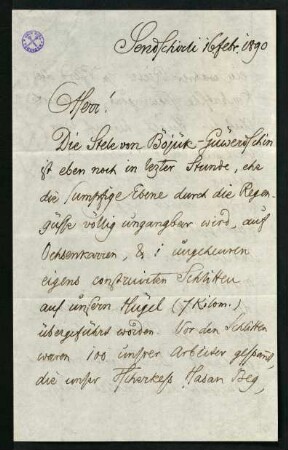 Sendschirli 16 febr. 1890
Herr!
Die Stele von Böjük-Güwerdschin
ist eben noch in lezter Stunde, ehe
die sumpfige Ebene durch die Regen-
güsse völlig ungangbar wird, auf
Ochsenkarren, & 1 ungeheuren
eigens construirten Schlitten
auf unsern Hügel (7 Kilom.)
übergeführt worden. Vor den Schlitten
waren 100 unsrer Arbeiter gespannt,
die unser Tscherkess Hasan Beg,